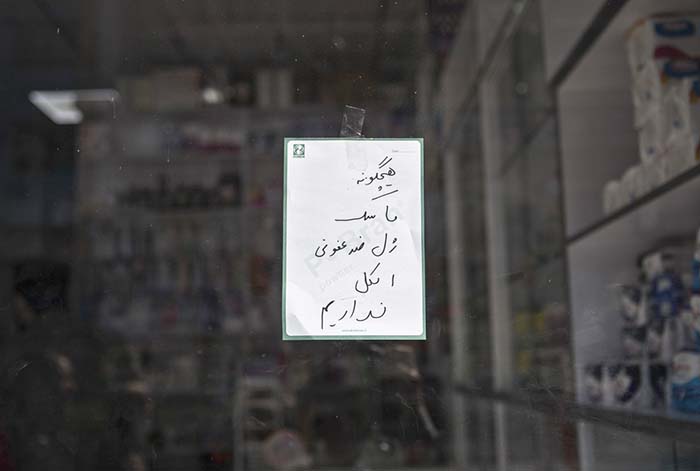 هیچگونه
ماسک
ژل ضد عفونی
الکل
نداریم